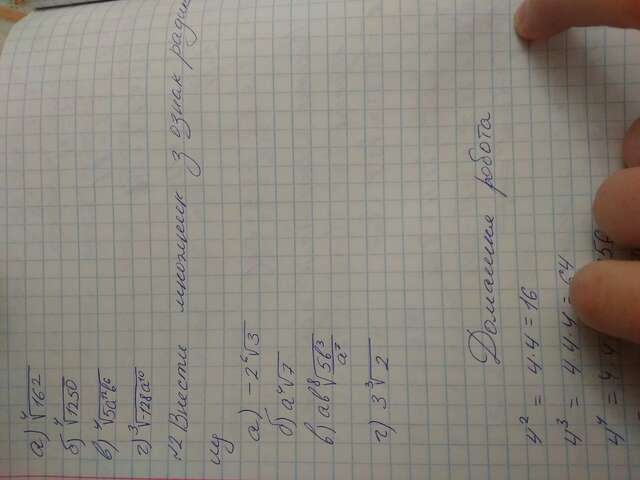 а) ⁴√162
б) ⁴√1250
в) ⁴√5a¹²b⁶
г) ³√-128a¹⁰
№2 Внести множник з взнак радик
му
а) -2⁶√3
б) a⁴√7
в) ab⁸√5b³/a⁷
г) 3³√2
Домашня робота
4² = 4·4 = 16
4³ = 4·4·4 = 64
4⁴ = 4·4